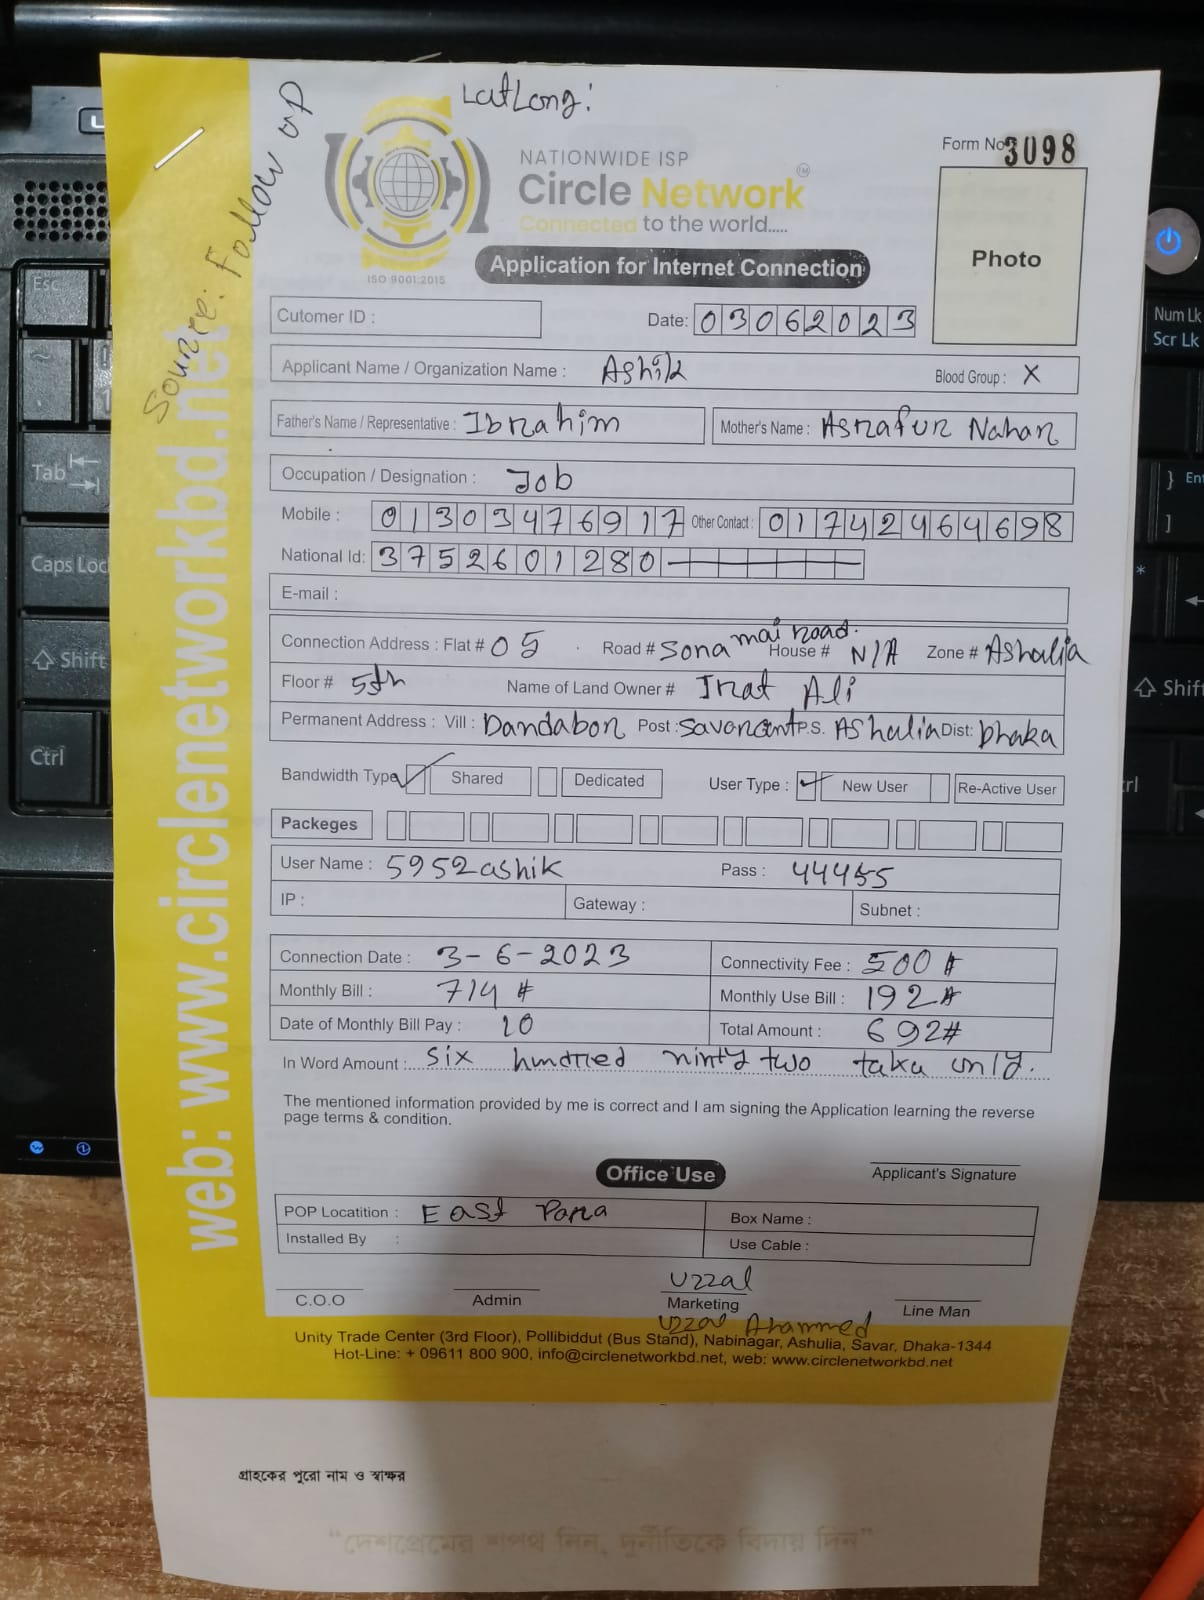 LatLong:
Source: Follow up
Form No 3098
NATIONWIDE ISP
Circle Network
TM
Connected to the world.....
ISO 9001:2015
Application for Internet Connection
Photo
Cutomer ID :
Date: 03062023
Applicant Name / Organization Name : Ashik Blood Group : X
Father's Name / Representative : Ibrahim Mother's Name : Asrafun Nahar
Occupation / Designation : Job
Mobile : 01303476917 Other Contact : 01742464698
National Id: 3752601280
E-mail :
Connection Address : Flat # 05 Road # Sonamai road. House # N/A Zone # Ashalia
Floor # 5th Name of Land Owner # Irat Ali
Permanent Address : Vill : Dandabon Post : Savarcant P.S. AShalia Dist: Dhaka
Bandwidth Type Shared Dedicated User Type : New User Re-Active User
Packeges
User Name : 5952ashik Pass : 44455
IP : Gateway : Subnet :
Connection Date : 3-6-2023 Connectivity Fee : 500#
Monthly Bill : 714 # Monthly Use Bill : 192#
Date of Monthly Bill Pay : 10 Total Amount : 692#
In Word Amount : six hundred ninty two taka only.
The mentioned information provided by me is correct and I am signing the Application learning the reverse
page terms & condition.
Applicant's Signature
Office Use
POP Locatition : East Para Box Name :
Installed By : Use Cable :
Uzzal
C.O.O Admin Marketing Line Man
Uzzal Ahammed
Unity Trade Center (3rd Floor), Pollibiddut (Bus Stand), Nabinagar, Ashulia, Savar, Dhaka-1344
Hot-Line: + 09611 800 900, info@circlenetworkbd.net, web: www.circlenetworkbd.net
web: www.circlenetworkbd.net
গ্রাহকের পুরো নাম ও স্বাক্ষর
"দেশপ্রেমের শপথ নিন, দুর্নীতিকে বিদায় দিন"
Esc
Tab
Caps Loc
Shift
Ctrl
Num Lk
Scr Lk
Shift